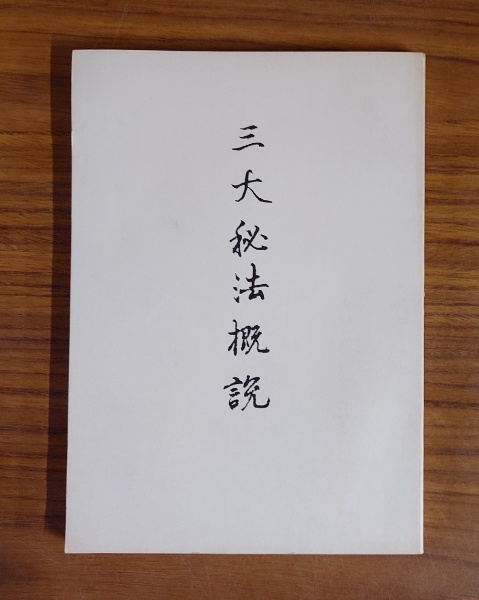 三大秘法概説